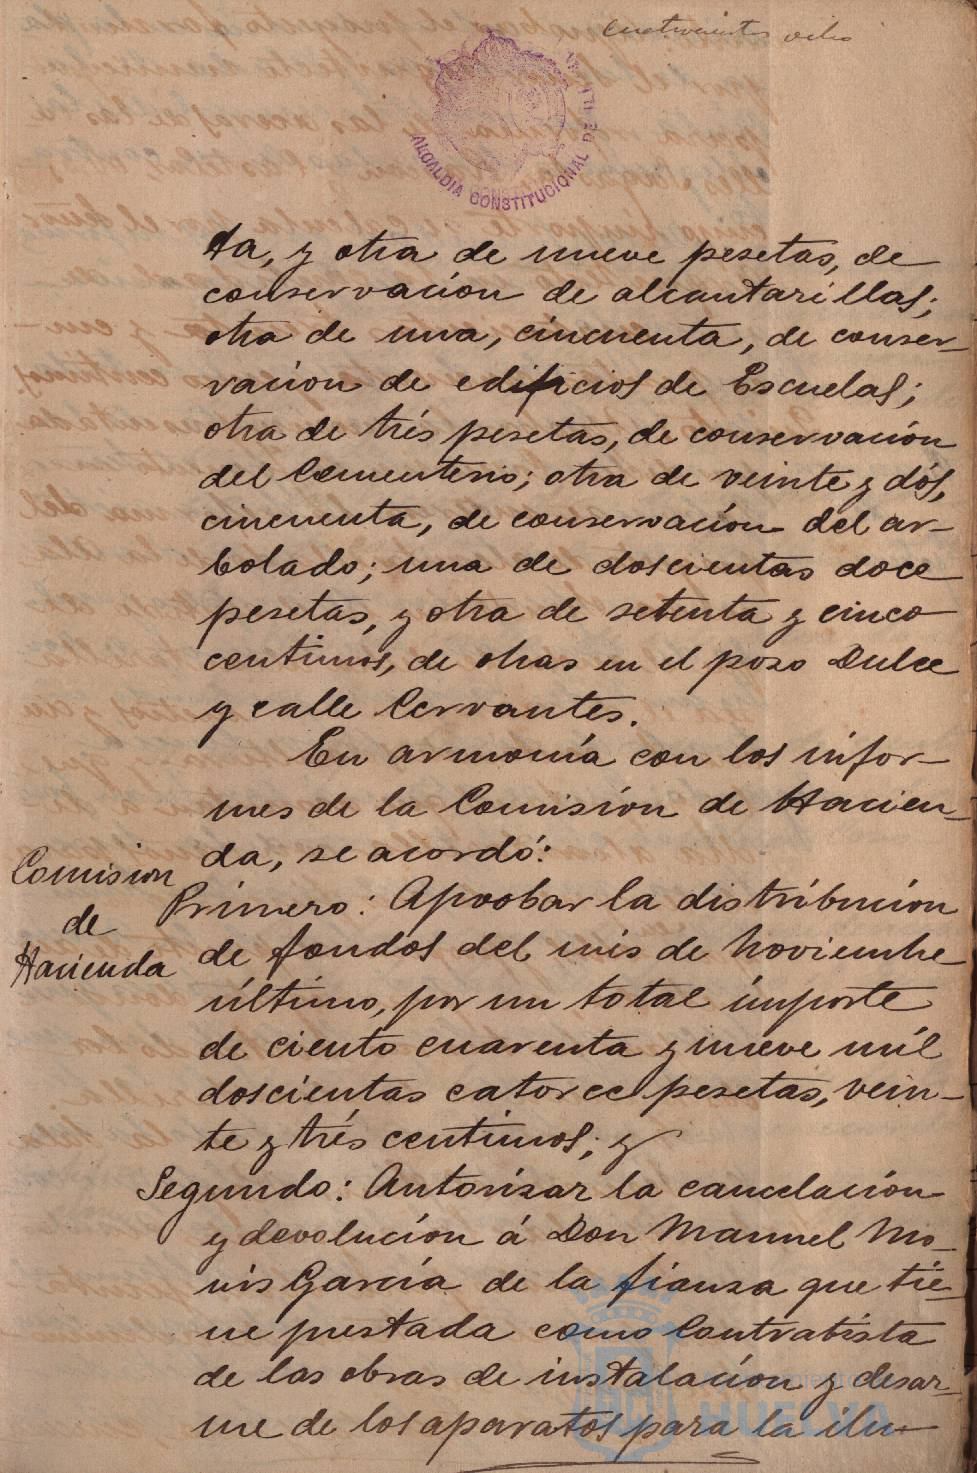 cuatrocientos ocho
ALCALDIA CONSTITUCIONAL DE
ta, y otra de nueve pesetas, de
conservación de alcantarillas;
otra de una, cincuenta, de conser-
vacion de edificios de Escuelas;
otra de trés pesetas, de conservación
del Cementerio; otra de veinte y dós,
cincuenta, de conservación del ar-
bolado; una de doscientas doce
pesetas, y otra de setenta y cinco
centimos, de obras en el pozo Dulce
y calle Cervantes.
En armonía con los infor-
mes de la Comisión de Hacien-
da, se acordó:
Comision
de
Hacienda
Primero: Aprobar la distribución
de fondos del mes de Noviembre
último, por un total importe
de ciento cuarenta y nueve mil
doscientas catorce pesetas, vein-
te y trés centimos; y
Segundo: Autorizar la cancelación
y devolución á Don Manuel Mo-
nis García de la fianza que tie-
ne prestada como Contratista
de las obras de instalación y desar-
me de los aparatos para la ilu-
HUELVA